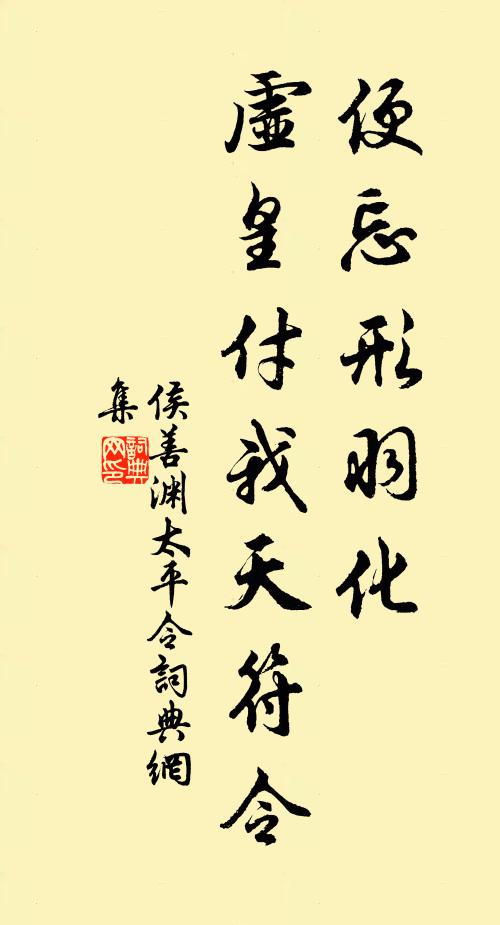 便忘形羽化
虛皇付我天符令
侯善渊太平令詞典網
集
詞典網印